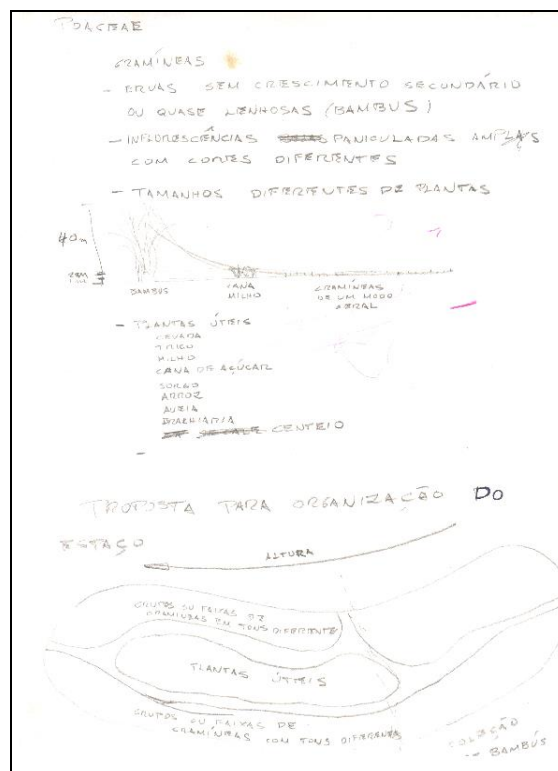 POACEAE
GRAMÍNEAS
- ERVAS SEM CRESCIMENTO SECUNDÁRIO
OU QUASE LENHOSAS (BAMBUS)
- INFLORESCÊNCIAS PANICULADAS AMPLAS
COM CORES DIFERENTES
- TAMANHOS DIFERENTES DE PLANTAS
40m
2m
BAMBUS
CANA
MILHO
GRAMÍNEAS
DE UM MODO
GERAL
- PLANTAS ÚTEIS
CEVADA
TRIGO
MILHO
CANA DE AÇÚCAR
SORGO
ARROZ
AVEIA
BRACHIARIA
CENTEIO
-
PROPOSTA PARA ORGANIZAÇÃO DO
ESPAÇO
ALTURA
GRUPOS OU FAIXAS DE
GRAMÍNEAS EM TONS DIFERENTE
PLANTAS ÚTEIS
GRUPOS OU FAIXAS DE
GRAMÍNEAS COM TONS DIFERENTES
COLEÇÃO
BAMBÚS